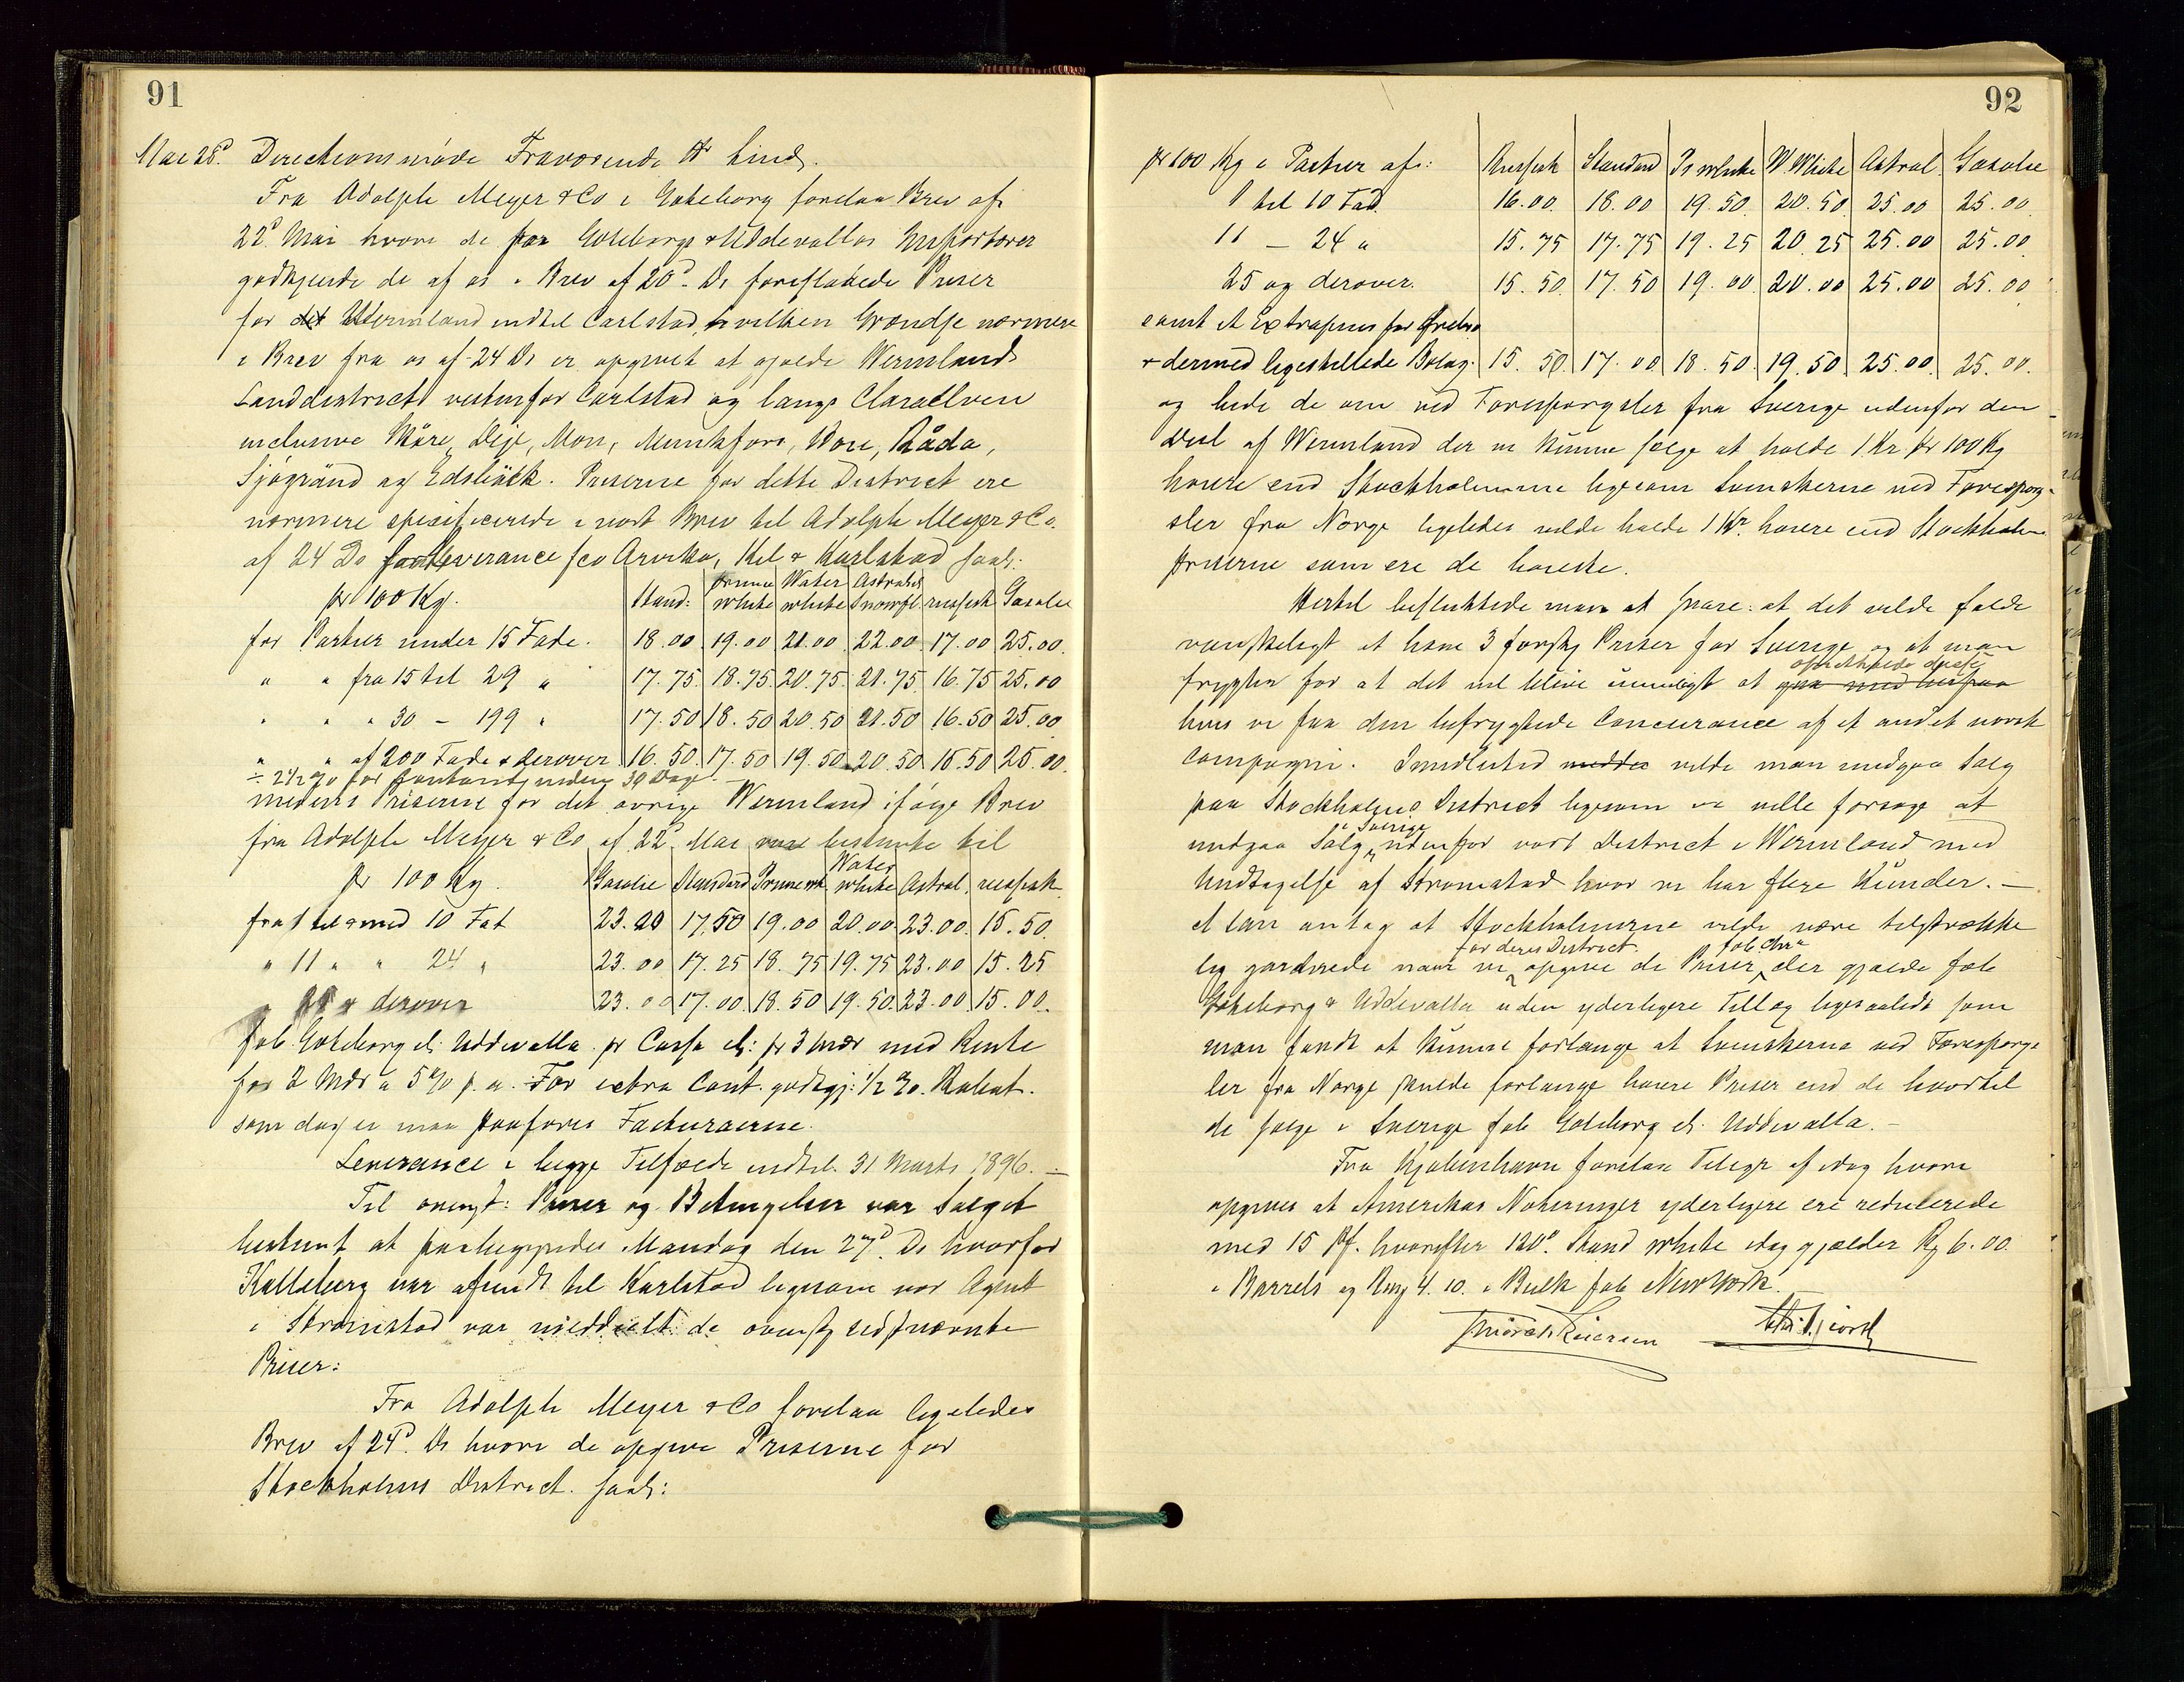 91
Mai 28d. Directionsmøde Fraværende Hr Lind.
Fra Adolph Meyer & Co i Gøteborg forelaa Brev af
22d Mai hvori de paa Gøteborgs & Uddevallas Importører
godkjende de af os i Brev af 20d Ds foreslaaede Priser
for det Wermland indtil Carlstad, hvilken Grændse nærmere
i Brev fra os af 24 Ds er opgivet at gjælde Wermlands
Landdistrict vestenfor Carlstad og langs Claraelven
inclusive Skåre, Deje, Mon, Munkfors, Råda,
Sjögränd og Edsbäck. Priserne for dette District ere
nærmere spesificerede i vort Brev til Adolph Meyer & Co.
af 24 Ds for Leverance fco Arvika, Kil & Karlstad saal:
pr 100 Kg. Stand: prime white Water white Astral & Snowfl russisk Gasolie
for Partier under 15 Fade. 18.00 19.00 21.00 22.00 17.00 25.00
" " fra 15 til 29 " 17.75 18.75 20.75 21.75 16.75 25.00
" " " 30 – 199 " 17.50 18.50 20.50 21.50 16.50 25.00
" " af 200 Fade & derover 16.50 17.50 19.50 20.50 15.50 25.00.
÷ 2½ % for Contant inden 30 Dage.
medens Priserne for det øvrige Wermland ifølge Brev
fra Adolph Meyer & Co af 22d Mai vare bestemte til
pr 100 Kg. Gasolie Standard Prime wh Water white Astral russisk
fra 1 til & med 10 Fat 23.00 17.50 19.00 20.00 23.00 15.50
" 11 " " 24 " 23.00 17.25 18.75 19.75 23.00 15.25
" 25 & derover 23.00 17.00 18.50 19.50 23.00 15.00.
fob Gøteborg el: Uddevalla pr Cassa el: pr 3 mdr med Rente
for 2 Mdr a 5 % p. a. For extra Cont. godtgj: ½ %. Rabat.
som dog ei maa paaføres Facturaerne.
Leverance i begge Tilfælde indtil 31 Marts 1896. –
Til ovenst: Priser og Betingelser var Salget
bestemt at paabegyndes Mandag den 27d Ds hvorfor
Kulleberg var afsendt til Karlstad ligesom vor Agent
i Strømstad var meddeelt de ovenst sidstnævnte
Priser:
Fra Adolph Meyer & Co forelaa ligeledes
Brev af 24d Ds hvori de opgive Priserne for
Stockholms District. saal:
92
pr 100 Kg i Partier af: Russisk Standard Pr white W White Astral Gasolie
1 til 10 Fad 16.00 18.00 19.50 20.50 25.00 25.00
11 – 24 " 15.75 17.75 19.25 20.25 25.00 25.00
25 og derover. 15.50 17.50 19.00 20.00 25.00 25.00
samt et Extrapris for Örebro
& dermed ligestillede Bolag. 15.50 17.00 18.50 19.50 25.00 25.00.
og bede de om ved Forespørgsler fra Sverige udenfor den
Deel af Wermland der vi kunne sælge at holde 1 Kr pr 100 Kg
høiere end Stockholmerne ligesom Svenskerne ved Forespørg-
sler fra Norge ligeledes vilde holde 1 Kr. høiere end Stockholm
priserne som ere de høieste.
Hertil besluttede man at svare: at det vilde falde
vanskeligt at have 3 forskj Priser for Sverige og at man
frygter for at det vil blive umuligt at opretholde disse
hvis vi faa den befrygtede Concurance af et andet norsk
Compagni. Imidlertid vilde man undgaa Salg
paa Stockholms District ligesom vi ville forsøge at
undgaa Salg i Sverige udenfor vort District i Wermland med
Undtagelse af Strømstad hvor vi har flere Kunder. –
at Stockholmerne vilde være tilstrække
lig garderede naar vi for deres District opgive de Priser fob Chra der gjælde fob
Gøteborg & Uddevalla uden yderligere Tillæg ligesaaledes som
man fandt at kunne forlange at Svenskerne ved Forespørgs
ler fra Norge skulde forlange høiere Priser end de hvortil
de sælge i Sverige fob Gøteborg el: Uddevalla. –
Fra Kjøbenhavn forelaa Telegr af idag hvori
opgives at Amerikas Noteringer yderligere ere reducerede
med 15 Pf. hvorefter 120° Stand white idag gjælder 6.00
i Barrels og 4.10. i Bulk fob New York.